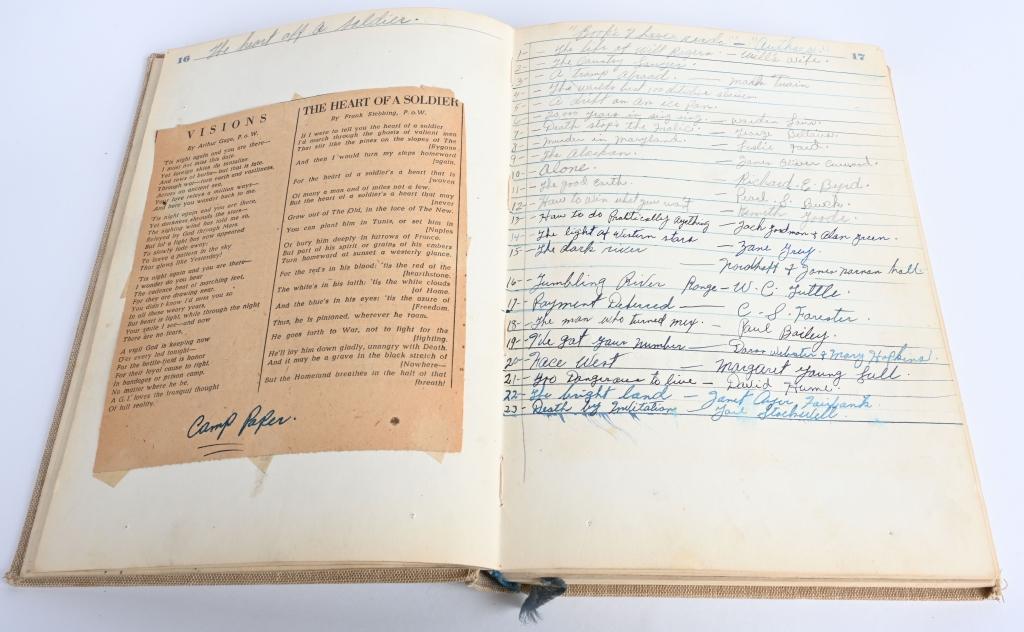 16
The heart off a soldier.
VISIONS
By Arthur Gage, P.o.W.
'Tis night again and you are there—
I must not miss this date.
Yet foreign skies my sentaline
And tears of barbs—but that is fate.
Through war—torn earth and vastliness,
Across an ancient sea,
Your love relays a million ways—
And here you wander back to me.
'Tis night again and you are there,
Yet darkness shrouds the stars—
The sighing wind has told me so,
Relayed by God through Mars
But lo! a light has now appeared
To slowly fade away;
To leave a pattern in the sky
That glows like Yesterday!
'Tis night again and you are there—
I wonder do you hear
The cadence beat of marching feet,
For they are drawing near.
You didn't know I'd miss you so
In all these weary years,
But heart is light, while through the night
Your smile I see—and now
There are no tears.
A vigil God is keeping now
O'er every lad tonight—
For the battle-field is honor
For their loyal cause to right.
In bandages or prison camp,
No matter where he be,
A G. I. loves the tranquil thought
Of full reality.
THE HEART OF A SOLDIER
By Frank Stebbing, P.o.W.
If I were to tell you the heart of a soldier
I'd march through the ghosts of valient men
That stir like the pines on the slopes of The
[Bygone
And then I would turn my steps homeward
[again.
For the heart of a soldier's a heart that is
[woven
Of many a man and of miles not a few.
But the heart of a soldier's a heart that may
[never
Grow out of The Old, in the tore of The New.
You can plant him in Tunis, or set him in
[Naples
Or bury him deeply in furrows of France.
But part of his spirit or grains of his embers
Turn homeward at sunset a westerly glance.
For the red's in his blood: 'tis the red of the
[hearthstone.
The white's in his faith: 'tis the white clouds
[of Home.
And the blue's in his eyes: 'tis the azure of
[Freedom.
Thus, he is pinioned, wherever he roam.
He goes forth to War, not to light for the
[fighting.
He'll lay him down gladly, unangry with Death.
And it may be a grave in the black stretch of
[Nowhere—
But the Homeland breathes in the halt of that
[breath!
Camp Paper.
17
"Book's I have read." — "Authors."
1- — The life of Will Rogers — Will's wife.
2- — The Country Lawyer.
3- — A tramp Abroad. — Mark Twain
4- — The worlds best 100 detective stories
5- — A drift on an ice pan.
6- — 20,000 Years in sing sing. — Warden Laws.
7- — Death stops the frolic. — George Bellairs.
8- — Murder in Maryland. — Leslie Ford.
9- — The Alaskan. — James Oliver Curwood.
10- — Alone. — Richard E. Byrd.
11- — The good Earth. — Pearl S. Buck.
12- — How to win what you want — Kenneth Goode.
13 — How to do Pratically Anything — Jack Goodman & Alan Green.
14- — The light of Western stars — Zane Grey
15- — The dark river — Nordhoff & James Norman hall
16- — Tumbling River Range — W. C. Tuttle.
17- — Payment Deferred — C. S. Forester.
18- — The man who turned mex. — Paul Bailey.
19- I've got your number — Doron Webster & Mary Hopkins.
20- — Face West — Margaret Young
21- — Too Dangerous to live — David Hume.
22- — The bright land — Janet Ayer Fairbank
23- — Death by Invitation — Gail Stockwell.